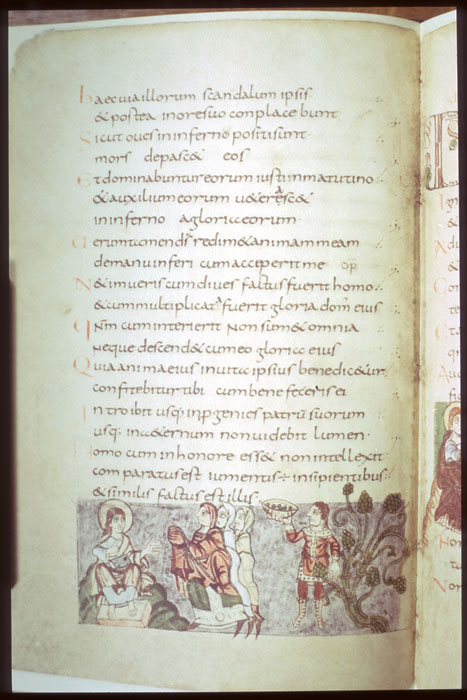 haec via illorum scandalum ipsis
& postea in ore suo conplacebunt
Sicut oves in inferno positi sunt
mors depasc& eos
Et dominabuntur eorum iusti in matutino
& auxilium eorum veterasc&
in inferno a gloriae eorum
deman inferi cum acceperit me
Ne timueris cum dives factus fuerit homo
& cum multiplicata fuerit gloria dom eius
Qnm cum interierit non sum& omnia
neque descend& cum eo gloriae eius
Quia anima eius in vita ipsius benedic&ur
confitebitur tibi cum bene feceris ei
Introibit usq; in pgenies patrū suorum
usq; in a&ernum non videbit lumen
omo cum in honore ess& non intellexit
comparatus est iumentis insipientibus
& similis factus est illis